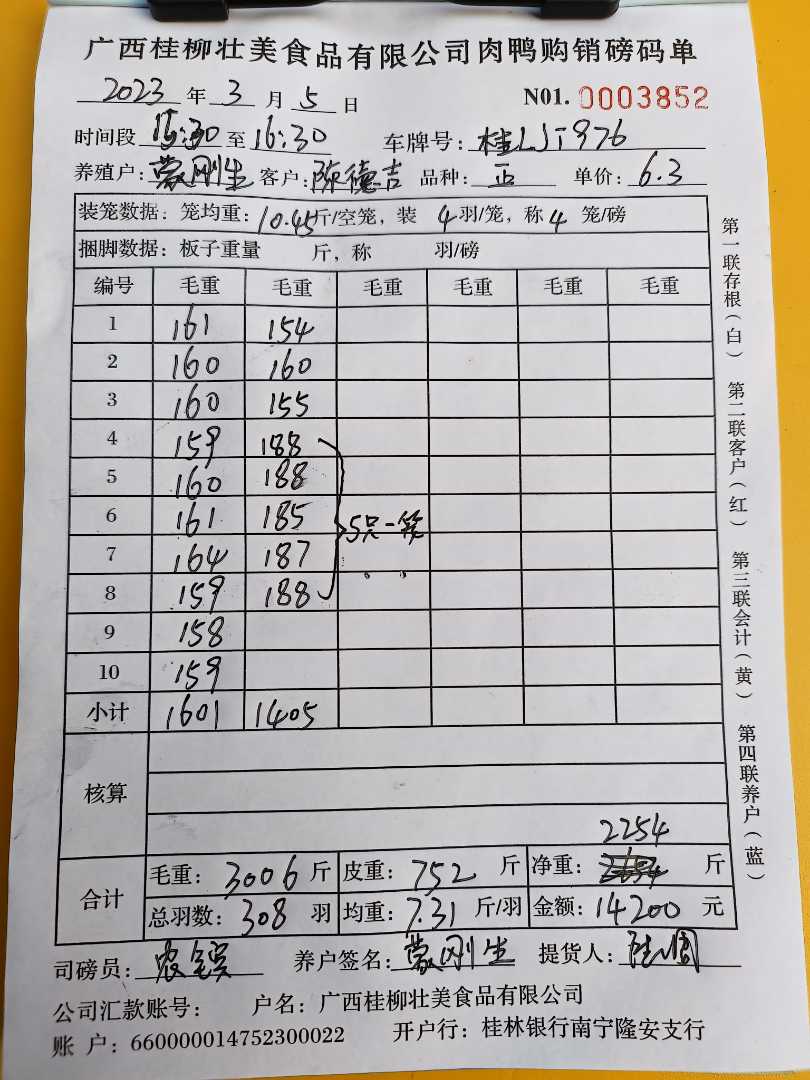 广西桂柳壮美食品有限公司肉鸭购销磅码单
2023 年 3 月 5 日 N01. 0003852
时间段 15:30 至 16:30 车牌号: 桂LJT976
养殖户: 蒙刚生 客户: 陈德吉 品种: 正 单价: 6.3
装笼数据: 笼均重: 10.45 斤/空笼, 装 4 羽/笼, 称 4 笼/磅
捆脚数据: 板子重量 斤, 称 羽/磅
编号 毛重 毛重 毛重 毛重 毛重 毛重
1 161 154
2 160 160
3 160 155
4 159 188
5 160 188
6 161 185 5只一笼
7 164 187
8 159 188
9 158
10 159
小计 1601 1405
核算
2254
合计 毛重: 3006 斤 皮重: 752 斤 净重: 斤
总羽数: 308 羽 均重: 7.31 斤/羽 金额: 14200 元
司磅员: 农 养户签名: 蒙刚生 提货人:
公司汇款账号: 户名: 广西桂柳壮美食品有限公司
账 户: 660000014752300022 开户行: 桂林银行南宁隆安支行
第一联存根(白) 第二联客户(红) 第三联会计(黄) 第四联养户(蓝)